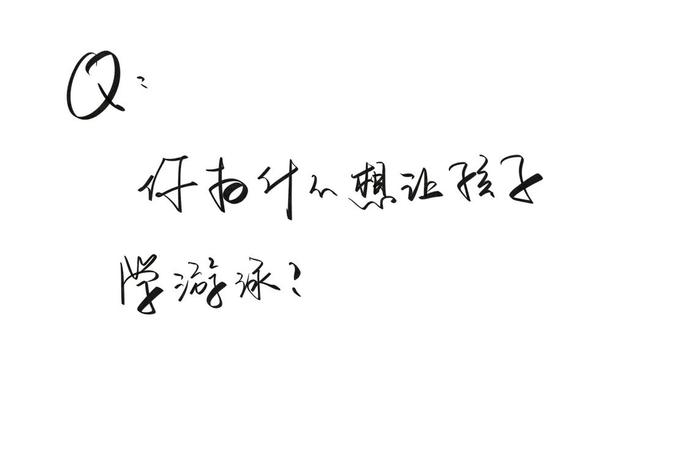 Q:
你为什么想让孩子
学游泳?